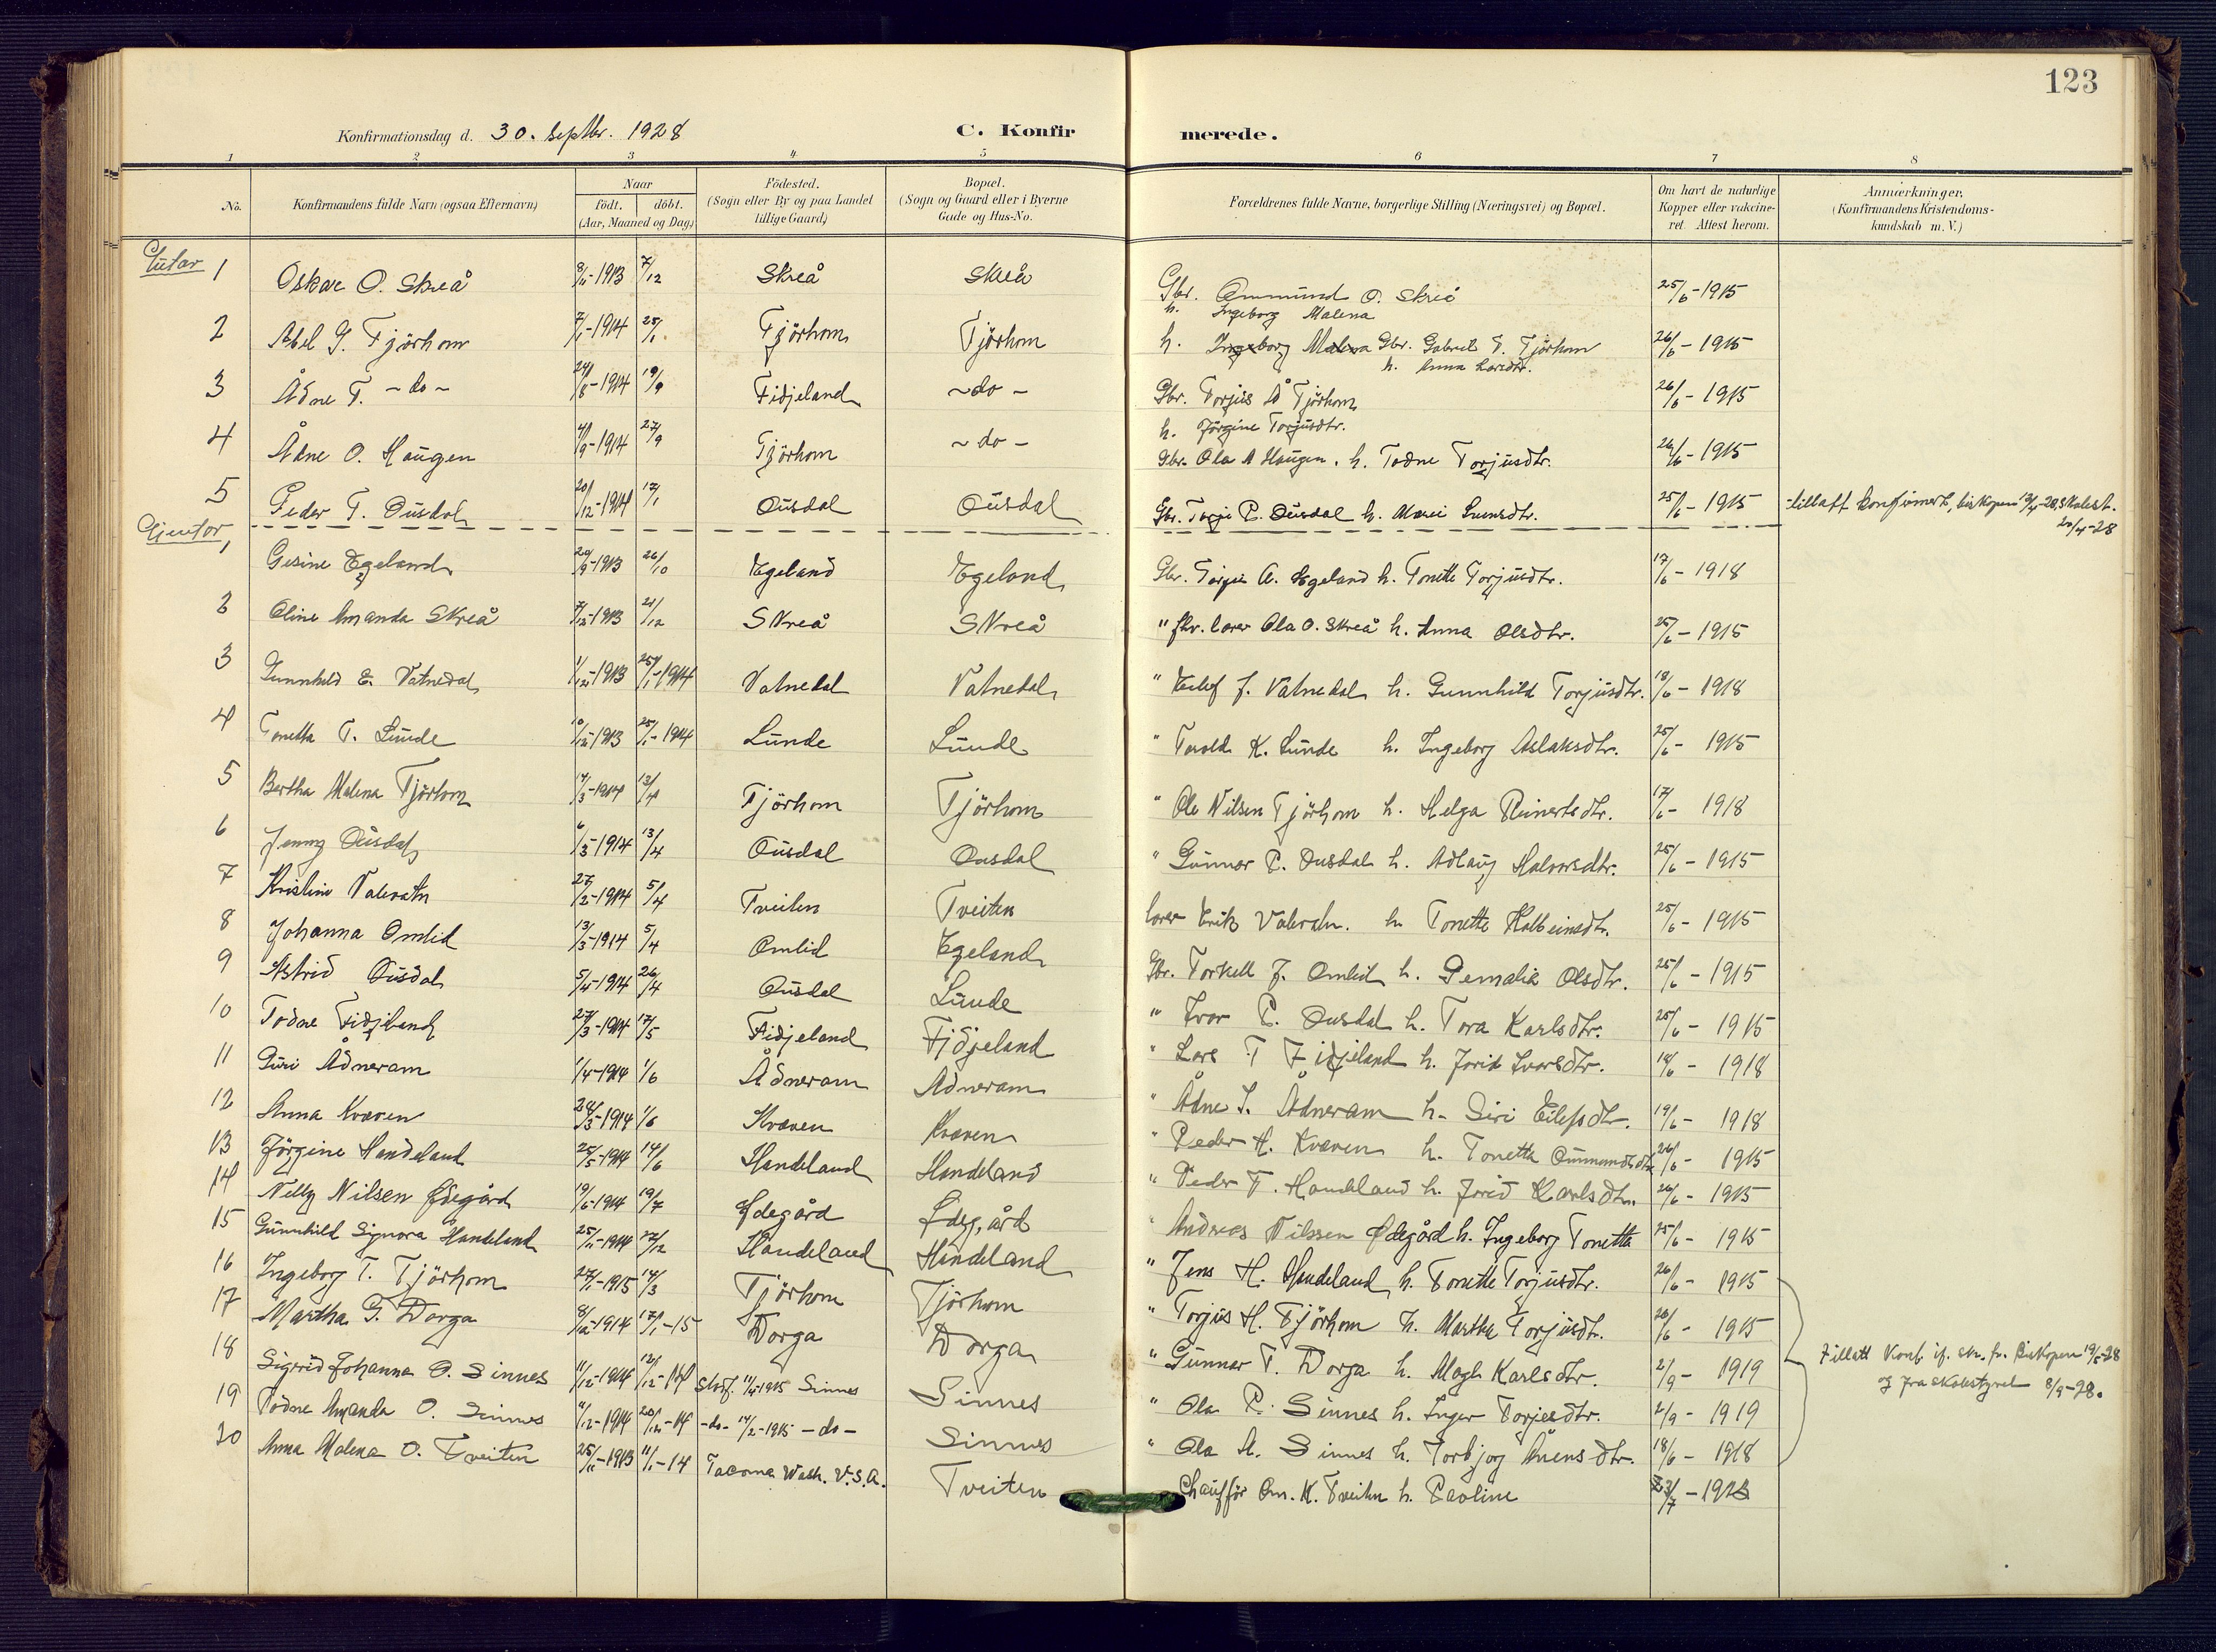 123
Konfirmationsdag d. 30. septbr. 1928 C. Konfirmerede.
1 2 3 4 5 6 7 8
No. Konfirmandens fulde Navn (ogsaa Efternavn) Naar Födt. döbt. (Aar, Maaned og Dag) Födested. (Sogn eller By og paa Landet tillige Gaard) Bopæl. (Sogn og Gaard eller i Byerne Gade og Hus-No. Forældrenes fulde Navne, borgerlige Stilling (Næringsvei) og Bopæl. Om havt de naturlige Kopper eller vakcineret. Attest herom. Anmærkninger, (Konfirmandens Kristendomskundskab m. V.)
Gutar
1 Oskar O. Skreå 9/11-1913 7/12 Skreå Skreå Gbr. Ommund O. Skreå h. Ingeborg Malena 25/6-1915
2 Abel G. Tjörhom 7/1-1914 25/1 Tjörhom Tjörhom h. Ingeborg Malena Gbr. Gabriel T. Tjörhom h. Anna Larsdtr. 26/6-1915
3 Ådne T. -do- 24/8-1914 19/9 Fidjeland -do- Gbr. Torjus Å Tjörhom h. Jörgine Torjusdtr. 26/6-1915
4 Ådne O. Haugen 4/9-1914 27/9 Tjörhom -do- Gbr. Ola A Haugen. h. Todne Torjusdtr. 26/6-1915
5 Peder T. Ousdal 20/12-1914 17/1 Ousdal Ousdal Gbr. Torje P. Ousdal h. Marie Svensdtr. 25/6-1915 tillatt konfirmert, biskopen 12/4-28, skolest. 20/4-28
Gjentor
1 Gesine Egeland 20/9-1913 26/10 Egeland Egeland Gbr. Torjus A. Egeland h. Tonette Torjusdtr. 17/6-1918
2 Oline Amanda Skreå 7/12-1913 21/12 Skreå Skreå " fhv. lærer Ola O. Skreå h. Anna Olsdtr. 25/6-1915
3 Gunnhild E. Vatnedal 1/12-1913 25/1-1914 Vatnedal Vatnedal " Eilef J. Vatnedal h. Gunnhild Torjusdtr. 18/6-1918
4 Tonetta T. Lunde 10/12-1913 25/1-1914 Lunde Lunde " Tarald K. Lunde h. Ingeborg Aslaksdtr. 25/6-1915
5 Bertha Malena Tjörhom 14/3-1914 13/4 Tjörhom Tjörhom " Ole Nilsen Tjörhom h. Helga Reinertsdtr. 17/6-1918
6 Jenny Ousdal 6/3-1914 13/4 Ousdal Ousdal " Gunnar P. Ousdal h. Adlaug Halvorsdtr. 25/6-1915
7 Kristine Valevatn 27/2-1914 5/4 Tveiten Tveiten lærer Erik Valevatn. h. Tonette Kolbeinsdtr. 25/6-1915
8 Johanna Omlid 13/3-1914 5/4 Omlid Egeland Gbr. Torkell J. Omlid h. Pernalia Olsdtr. 25/6-1915
9 Astrid Ousdal 5/4-1914 26/4 Ousdal Lunde " Ivar P. Ousdal h. Tora Karlsdtr. 25/6-1915
10 Todne Fidjeland 27/3-1914 17/5 Fidjeland Fidjeland " Lars T Fidjeland h. Jorid Ivarsdtr. 18/6-1918
11 Guri Ådneram 1/4-1914 1/6 Ådneram Ådneram " Ådne S. Ådneram h. Siri Eilefsdtr. 19/6-1918
12 Anna Kvæven 28/3-1914 1/6 Kvæven Kvæven " Peder H. Kvæven h. Tonetta Ommundsdtr. 26/6-1915
13 Jörgine Handeland 25/5-1914 14/6 Handeland Handeland " Peder T. Handeland h. Jorid Karlsdtr. 26/6-1915
14 Nelly Nilsen Ødegård 19/6-1914 19/7 Ødegård Ødegård " Andreas Nilssen Ødegård h. Ingeborg Tonetta 25/6-1915
15 Gunnhild Signora Handeland 25/11-1914 27/12 Handeland Handeland " Jens H. Handeland h. Tonette Torjusdtr. 26/6-1915
16 Ingeborg T. Tjörhom 27/1-1915 14/3 Tjörhom Tjörhom " Torjus H. Tjörhom h. Martha Torjusdtr. 26/6-1915
17 Martha G. Dorga 8/12-1914 17/1-15 Dorga Dorga " Gunnar T. Dorga h. Magli Karlsdtr. 2/9-1919
18 Sigrid Johanna O. Sinnes 11/12-1914 12/12-14 Stadf. 11/4-1915 Sinnes Sinnes " Ola P. Sinnes h. Inger Torjesdtr. 2/9-1919
19 Todne Amanda O. Sinnes 11/12-1914 20/12-14 -do- 14/2-1915 -do- Sinnes " Ola A. Sinnes h. Torbjog Ånensdtr. 18/6-1918
20 Anna Malena O. Tveiten 25/11-1913 11/1-14 Tacoma Wash. U.S.A. Tveiten Chaufför Om. K. Tveiten h. Paoline 23/7-1926
Tillatt konf. if. skr. fr. Biskopen 19/5-28
og fra skolestyret 8/9-28.